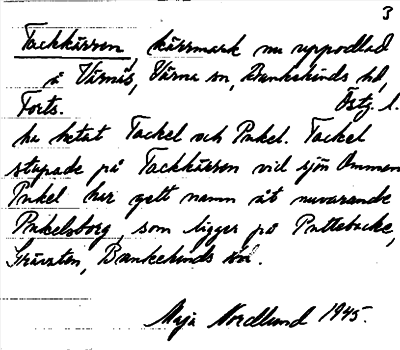 3
Tackkärren, kärrmark nu uppodlad
å Värnäs, Värna sn, Bankekinds hd,
Forts. Östg. l.
ha hetat Tackel och Pukel. Tackel
stupade på Tackkärren vid sjön Ommen
Pukel har gett namn åt nuvarande
Pukelsborg, som ligger på Puttebacke,
Bankekinds hd.
Maja Nordlund 1945.